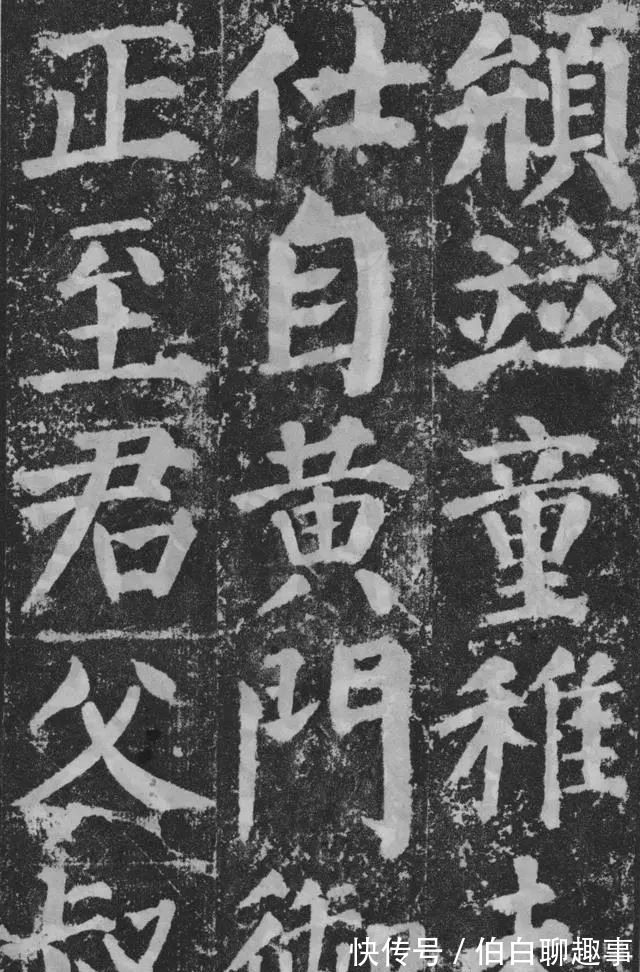 並童稚
仕自黄門御
正至君父叔
快传号/伯白聊趣事